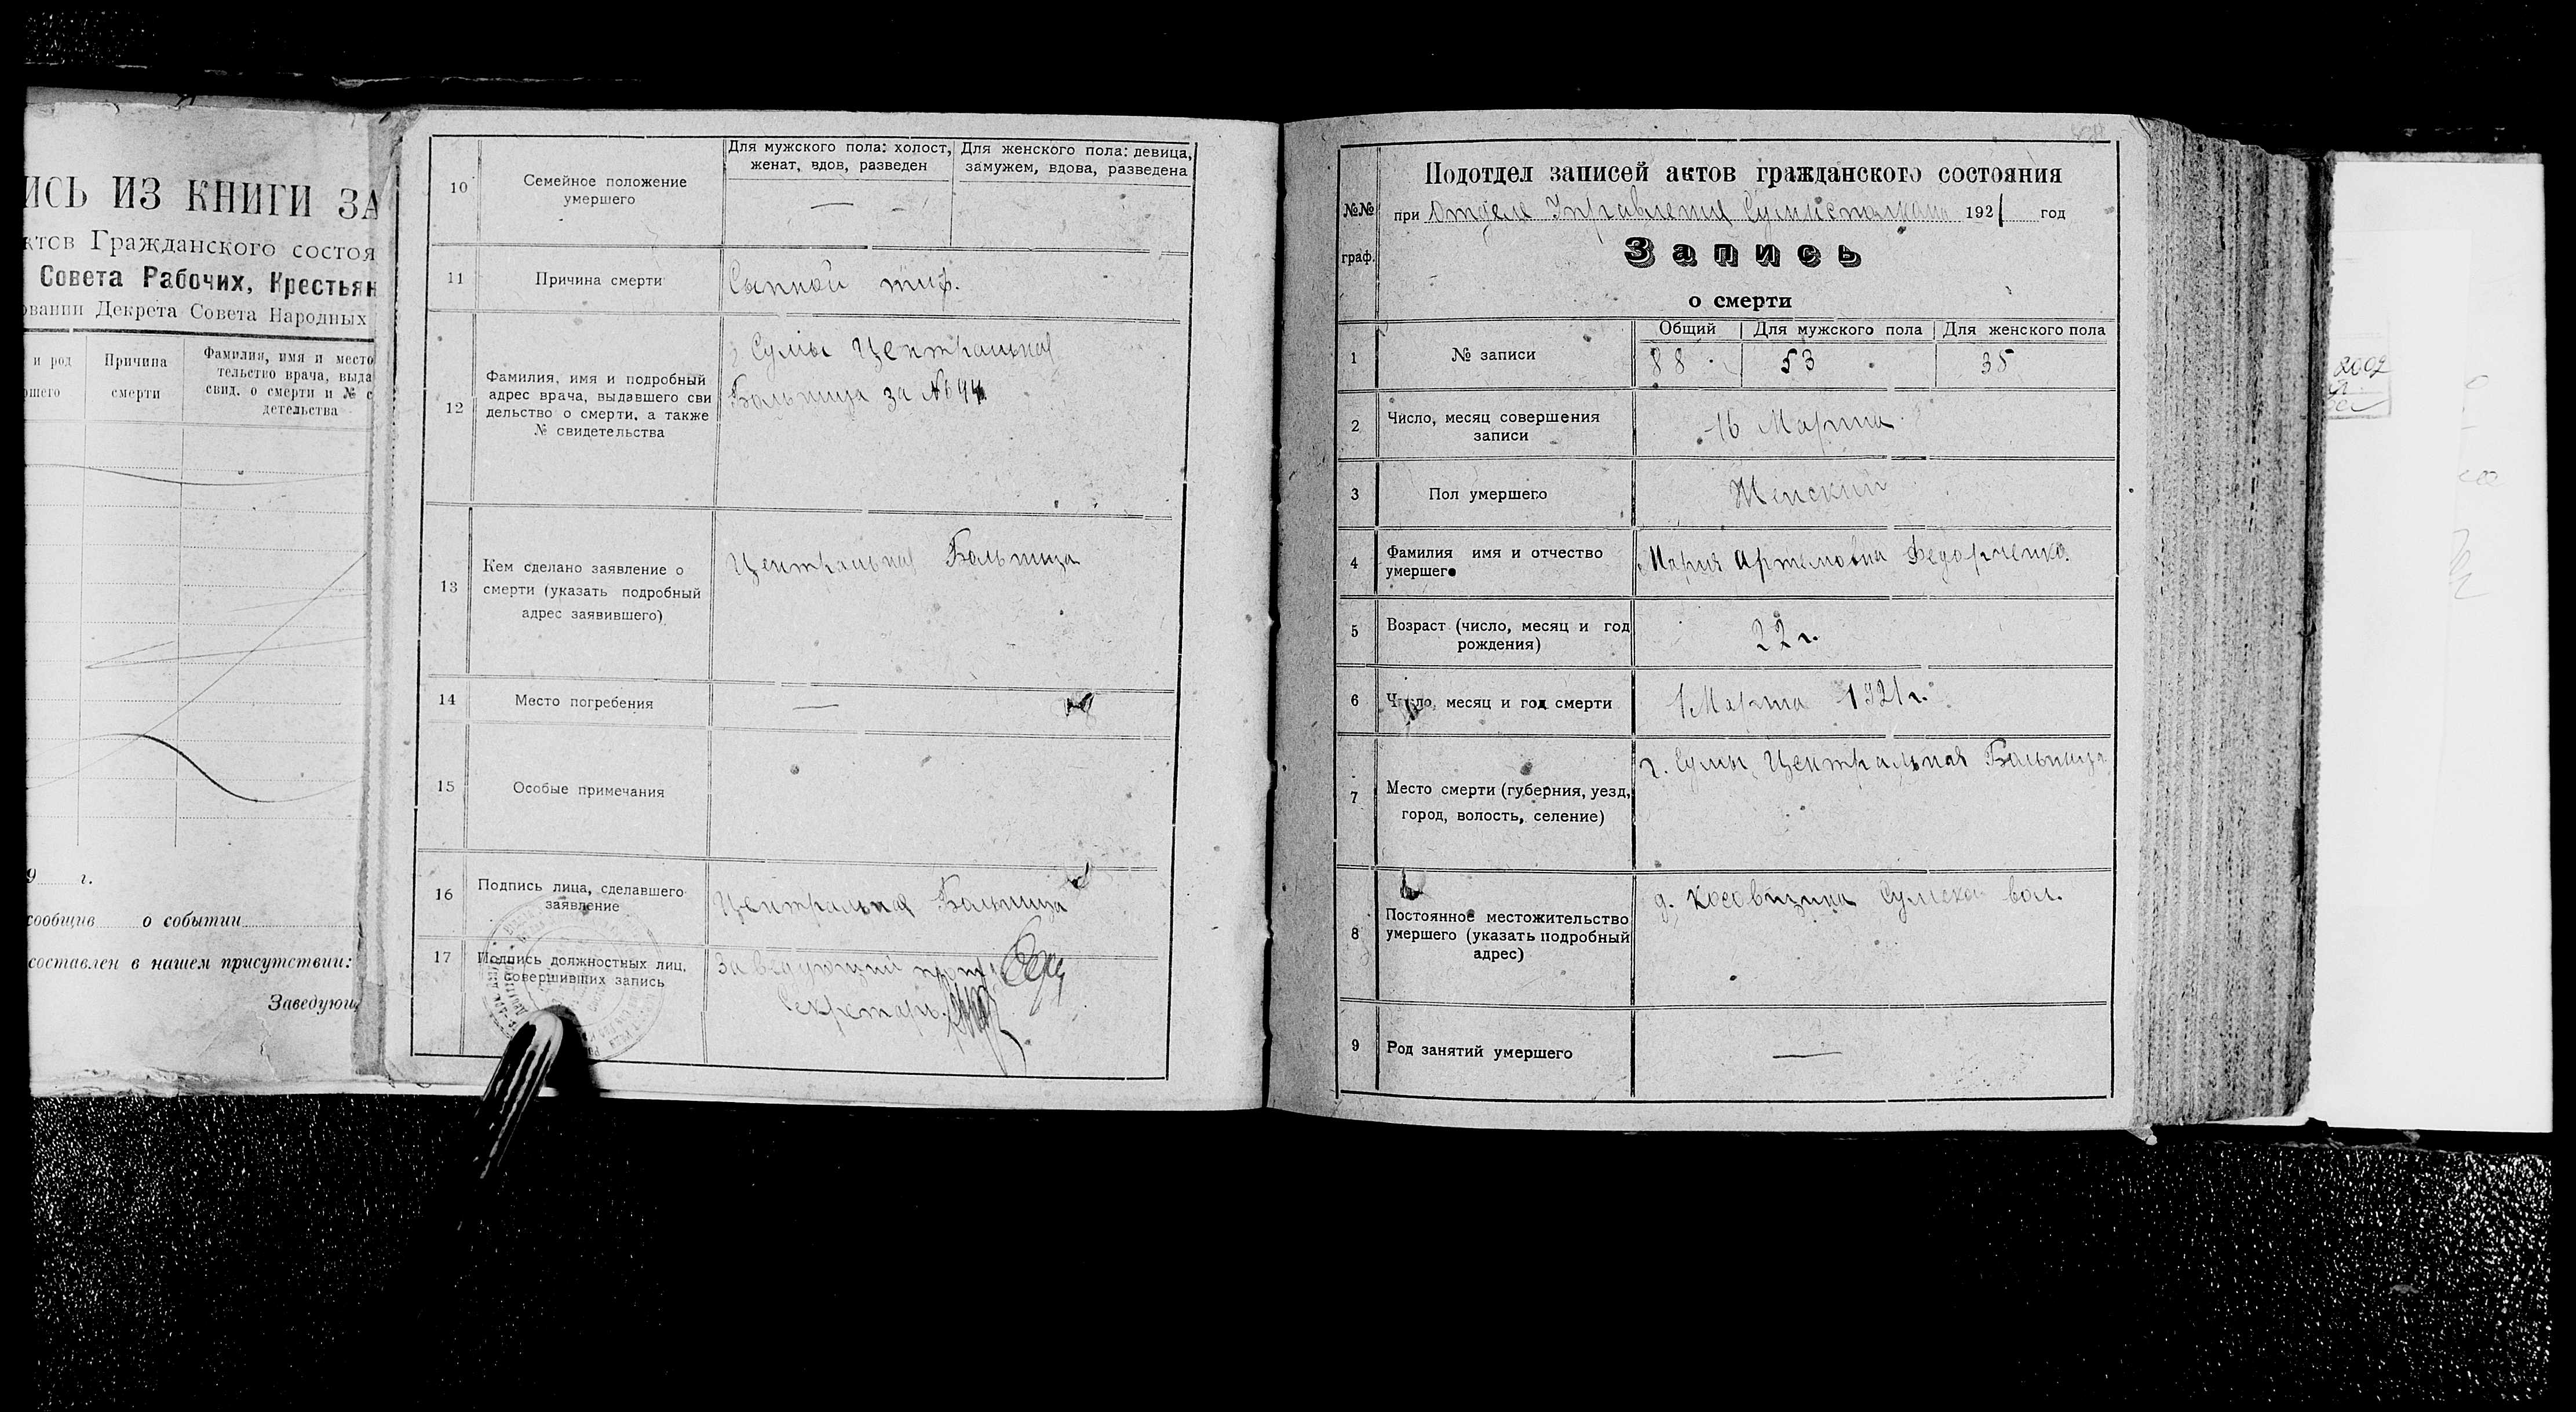 ИСЬ ИЗ КНИГИ ЗА
ктов Гражданского состоя
Совета Рабочих, Крестьян
овании Декрета Совета Народных
и род
шего
Причина
смерти
Фамилия, имя и место
тельство врача, выда
свид. о смерти и № с
детельства
9 г.
сообщив о событии
составлен в нашем присутствии:
Заведующ
10
Семейное положение
умершего
Для мужского пола: холост,
женат, вдов, разведен
Для женского пола: девица,
замужем, вдова, разведена
—
11
Причина смерти
Сыпной тиф.
12
Фамилия, имя и подробный
адрес врача, выдавшего сви
дельство о смерти, а также
№ свидетельства
Сумы Центральная
Больница за №
13
Кем сделано заявление о
смерти (указать подробный
адрес заявившего)
Центральная Больница
14
Место погребения
—
15
Особые примечания
16
Подпись лица, сделавшего
заявление
Центральная Больница
17
Подпись должностных лиц,
совершивших запись
Заведующий
Секретарь
№№
граф.
Подотдел записей актов гражданского состояния
при Отделе Управления Сумисполкома 1921 год
Запись
о смерти
1
№ записи
Общий
Для мужского пола
Для женского пола
88
53
35
2
Число, месяц совершения
записи
16 Марта
3
Пол умершего
Женский
4
Фамилия имя и отчество
умершего
Мария Артемовна Федорченко.
5
Возраст (число, месяц и год
рождения)
22 г.
6
Число, месяц и год смерти
1 Марта 1921 г.
7
Место смерти (губерния, уезд,
город, волость, селение)
г. Сумы, Центральная Больница
8
Постоянное местожительство
умершего (указать подробный
адрес)
д. Косовщина Сумской вол.
9
Род занятий умершего
—
2002